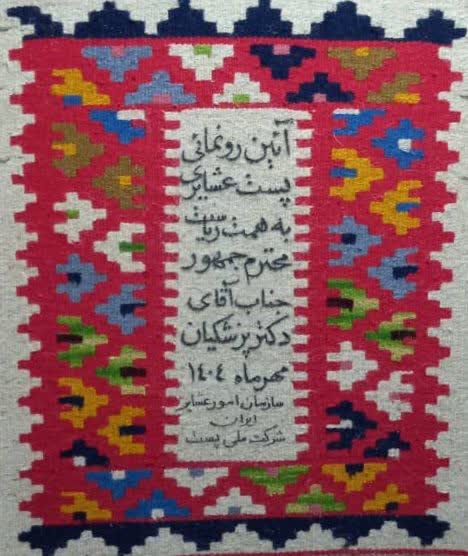 آئین رونمائی
پست عشایری
به همت ریاست
محترم جمهور
جناب آقای
دکتر پزشکیان
مهرماه ۱۴۰۴
سازمان امور عشایر
ایران
شرکت ملی پست